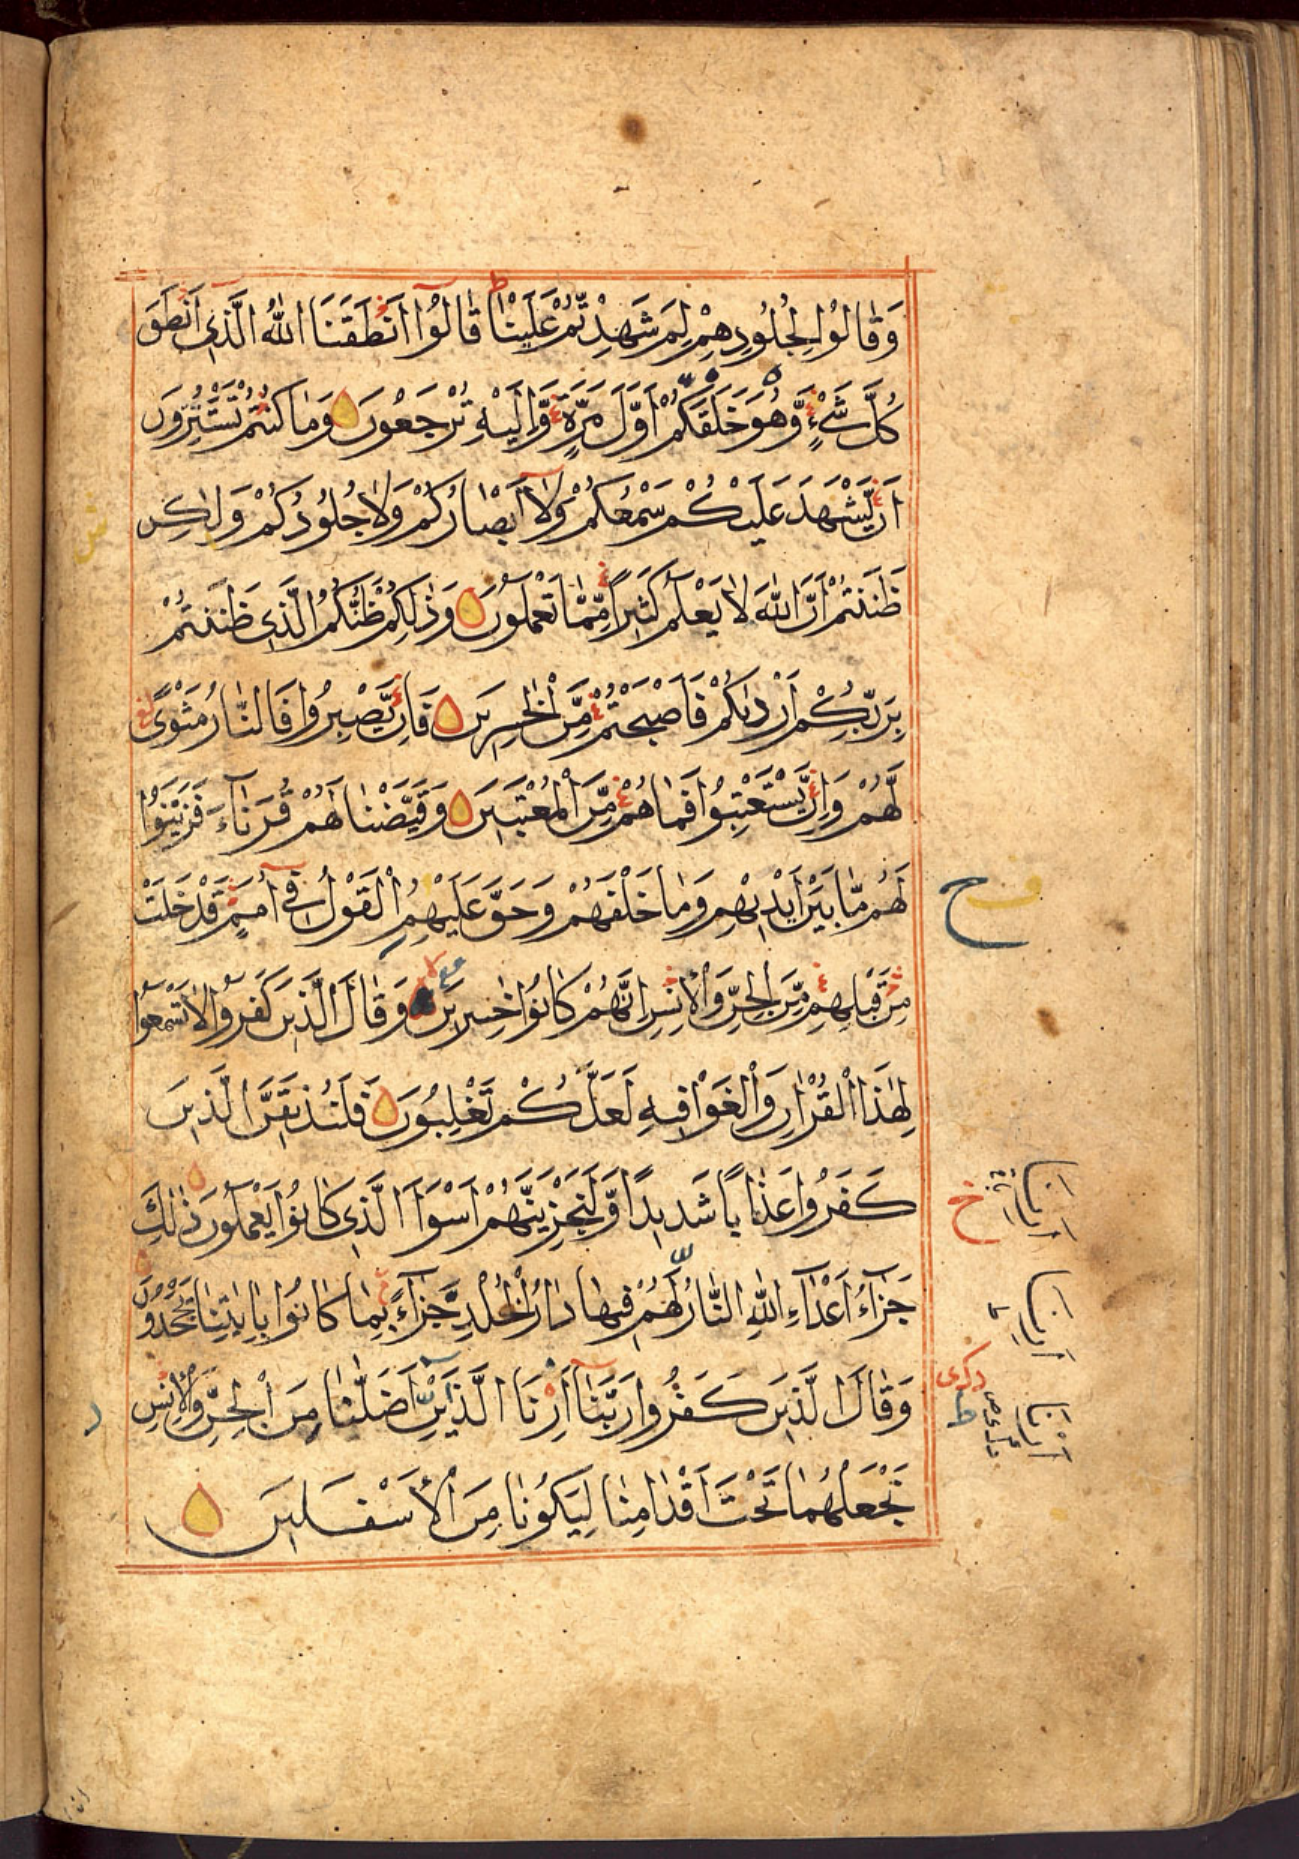 وَقَالُوْا لِجُلُوْدِهِمْ لِمَ شَهِدْتُّمْ عَلَيْنَا قَالُوْا اَنْطَقَنَا اللّٰهُ الَّذِى اَنْطَقَ
كُلَّ شَىْءٍ وَّهُوَ خَلَقَكُمْ اَوَّلَ مَرَّةٍ وَّاِلَيْهِ تُرْجَعُوْنَ وَمَا كُنْتُمْ تَسْتَتِرُوْنَ
اَنْ يَّشْهَدَ عَلَيْكُمْ سَمْعُكُمْ وَلَا اَبْصَارُكُمْ وَلَا جُلُوْدُكُمْ وَلٰكِنْ
ظَنَنْتُمْ اَنَّ اللّٰهَ لَا يَعْلَمُ كَثِيْرًا مِّمَّا تَعْمَلُوْنَ وَذٰلِكُمْ ظَنُّكُمُ الَّذِى ظَنَنْتُمْ
بِرَبِّكُمْ اَرْدٰىكُمْ فَاَصْبَحْتُمْ مِّنَ الْخٰسِرِيْنَ فَاِنْ يَّصْبِرُوْا فَالنَّارُ مَثْوًى
لَّهُمْ وَاِنْ يَّسْتَعْتِبُوْا فَمَا هُمْ مِّنَ الْمُعْتَبِيْنَ وَقَيَّضْنَا لَهُمْ قُرَنَآءَ فَزَيَّنُوْا
لَهُمْ مَّا بَيْنَ اَيْدِيْهِمْ وَمَا خَلْفَهُمْ وَحَقَّ عَلَيْهِمُ الْقَوْلُ فِىْ اُمَمٍ قَدْ خَلَتْ
مِنْ قَبْلِهِمْ مِّنَ الْجِنِّ وَالْاِنْسِ اِنَّهُمْ كَانُوْا خٰسِرِيْنَ وَقَالَ الَّذِيْنَ كَفَرُوْا لَا تَسْمَعُوْا
لِهٰذَا الْقُرْاٰنِ وَالْغَوْا فِيْهِ لَعَلَّكُمْ تَغْلِبُوْنَ فَلَنُذِيْقَنَّ الَّذِيْنَ
كَفَرُوْا عَذَابًا شَدِيْدًا وَّلَنَجْزِيَنَّهُمْ اَسْوَاَ الَّذِى كَانُوْا يَعْمَلُوْنَ ذٰلِكَ
جَزَآءُ اَعْدَآءِ اللّٰهِ النَّارُ لَهُمْ فِيْهَا دَارُ الْخُلْدِ جَزَآءً بِمَا كَانُوْا بِاٰيٰتِنَا يَجْحَدُوْنَ
وَقَالَ الَّذِيْنَ كَفَرُوْا رَبَّنَا اَرِنَا الَّذَيْنِ اَضَلّٰنَا مِنَ الْجِنِّ وَالْاِنْسِ
نَجْعَلْهُمَا تَحْتَ اَقْدَامِنَا لِيَكُوْنَا مِنَ الْاَسْفَلِيْنَ
ح
خ
ارنا
ارنا
ط